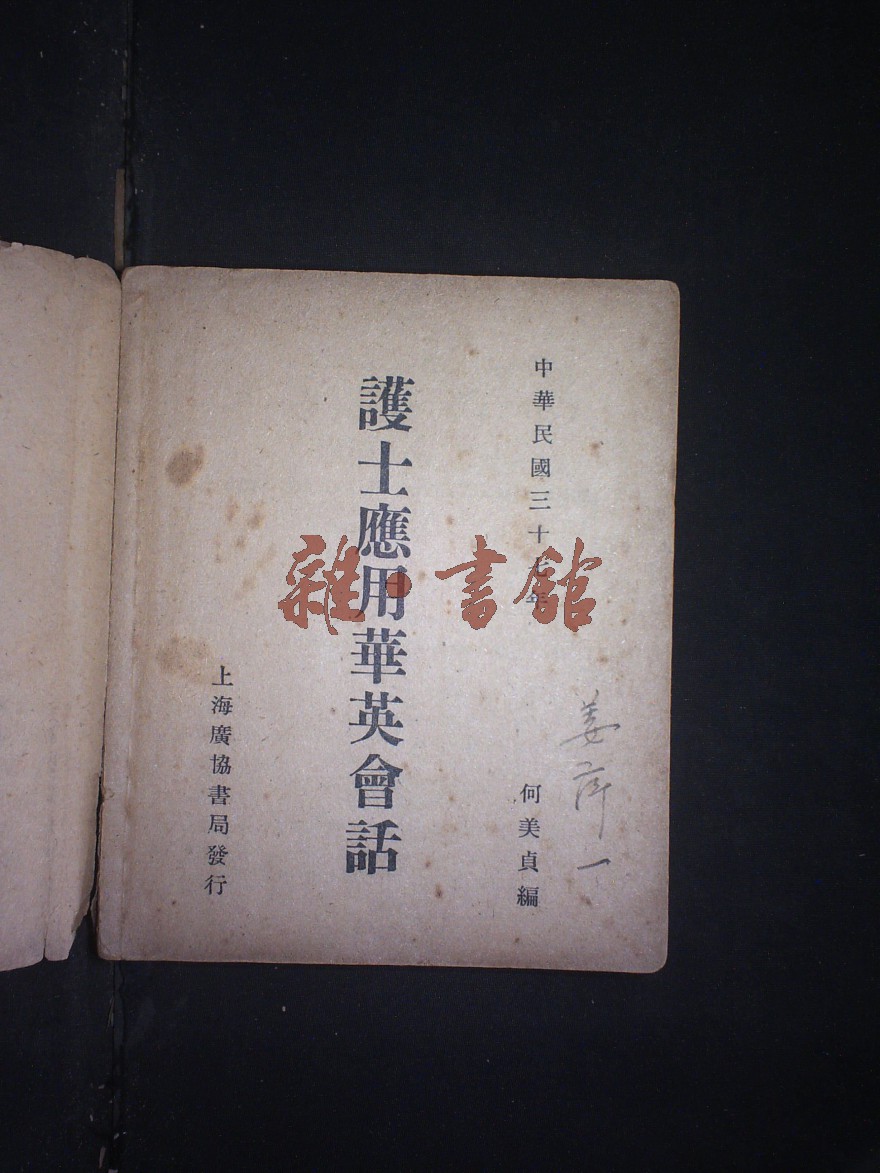 中華民國三十七年
何美貞編
護士應用華英會話
上海廣協書局發行
雜書館